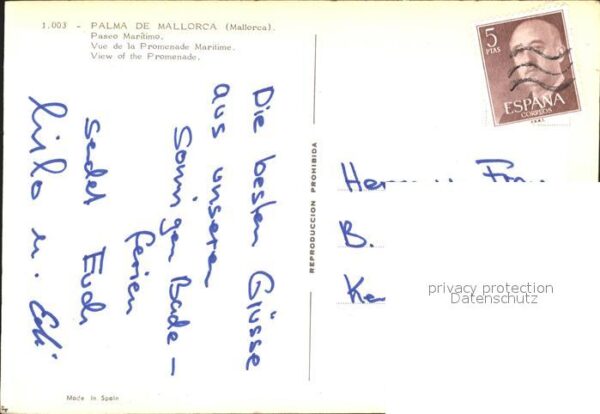 1.003 - PALMA DE MALLORCA (Mallorca).
Paseo Marítimo.
Vue de la Promenade Maritime.
View of the Promenade.
5
PTAS
ESPAÑA
CORREOS
Die besten Grüsse
aus unseren
Sonnigen Bade-
ferien
sendet Euch
REPRODUCCION PROHIBIDA
B.
privacy protection
Datenschutz
Made in Spain